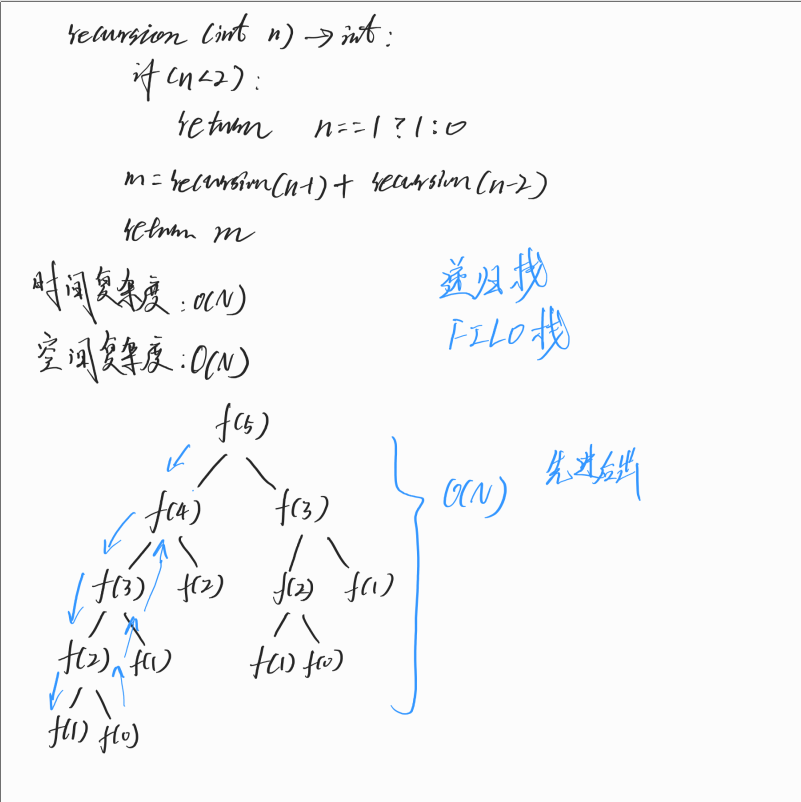 recursion (int n) → int:
if (n<2):
return n==1?1:0
m=recursion(n-1)+ recursion(n-2)
return m
时间复杂度:O(N)
空间复杂度:O(N)
递归栈
FILO栈
f(5)
f(4) f(3)
O(N) 先进后出
f(3) f(2) f(2) f(1)
f(2) f(1) f(1) f(0)
f(1) f(0)